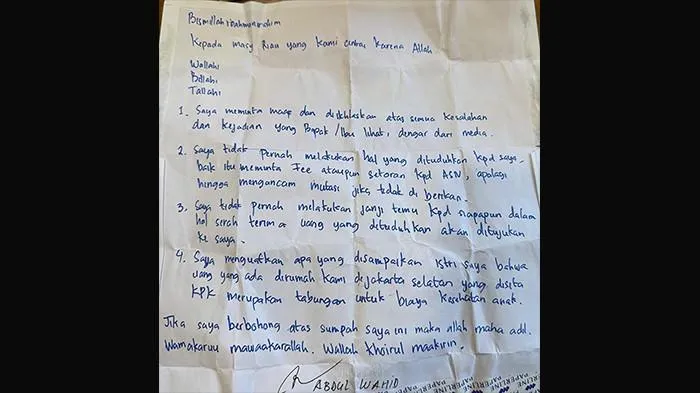 Bismillahirrahmanirrahim
Kepada masy Riau yang kami cintai karena Allah.
Wallahi
Billahi
Tallahi
1. Saya meminta maaf dan diikhlaskan atas semua kesalahan
dan kejadian yang Bapak/Ibu lihat, dengar dari media.
2. Saya tidak pernah melakukan hal yang dituduhkan kpd saya
baik itu meminta Fee ataupun setoran kpd ASN, apalagi
hingga mengancam mutasi jika tidak di berikan.
3. Saya tidak pernah melakukan janji temu kpd siapapun dalam
hal serah terima uang yang dituduhkan akan ditujukan
ke saya.
4. Saya menguatkan apa yang disampaikan istri saya bahwa
uang yang ada dirumah kami di Jakarta Selatan yang disita
KPK merupakan tabungan untuk biaya kesehatan anak.
Jika saya berbohong atas sumpah saya ini maka allah maha adil.
Wamakaruu mawaakarallah. Wallah khoirul maakirin.
ABDUL WAHID
PAPERLINE PAPERLINE